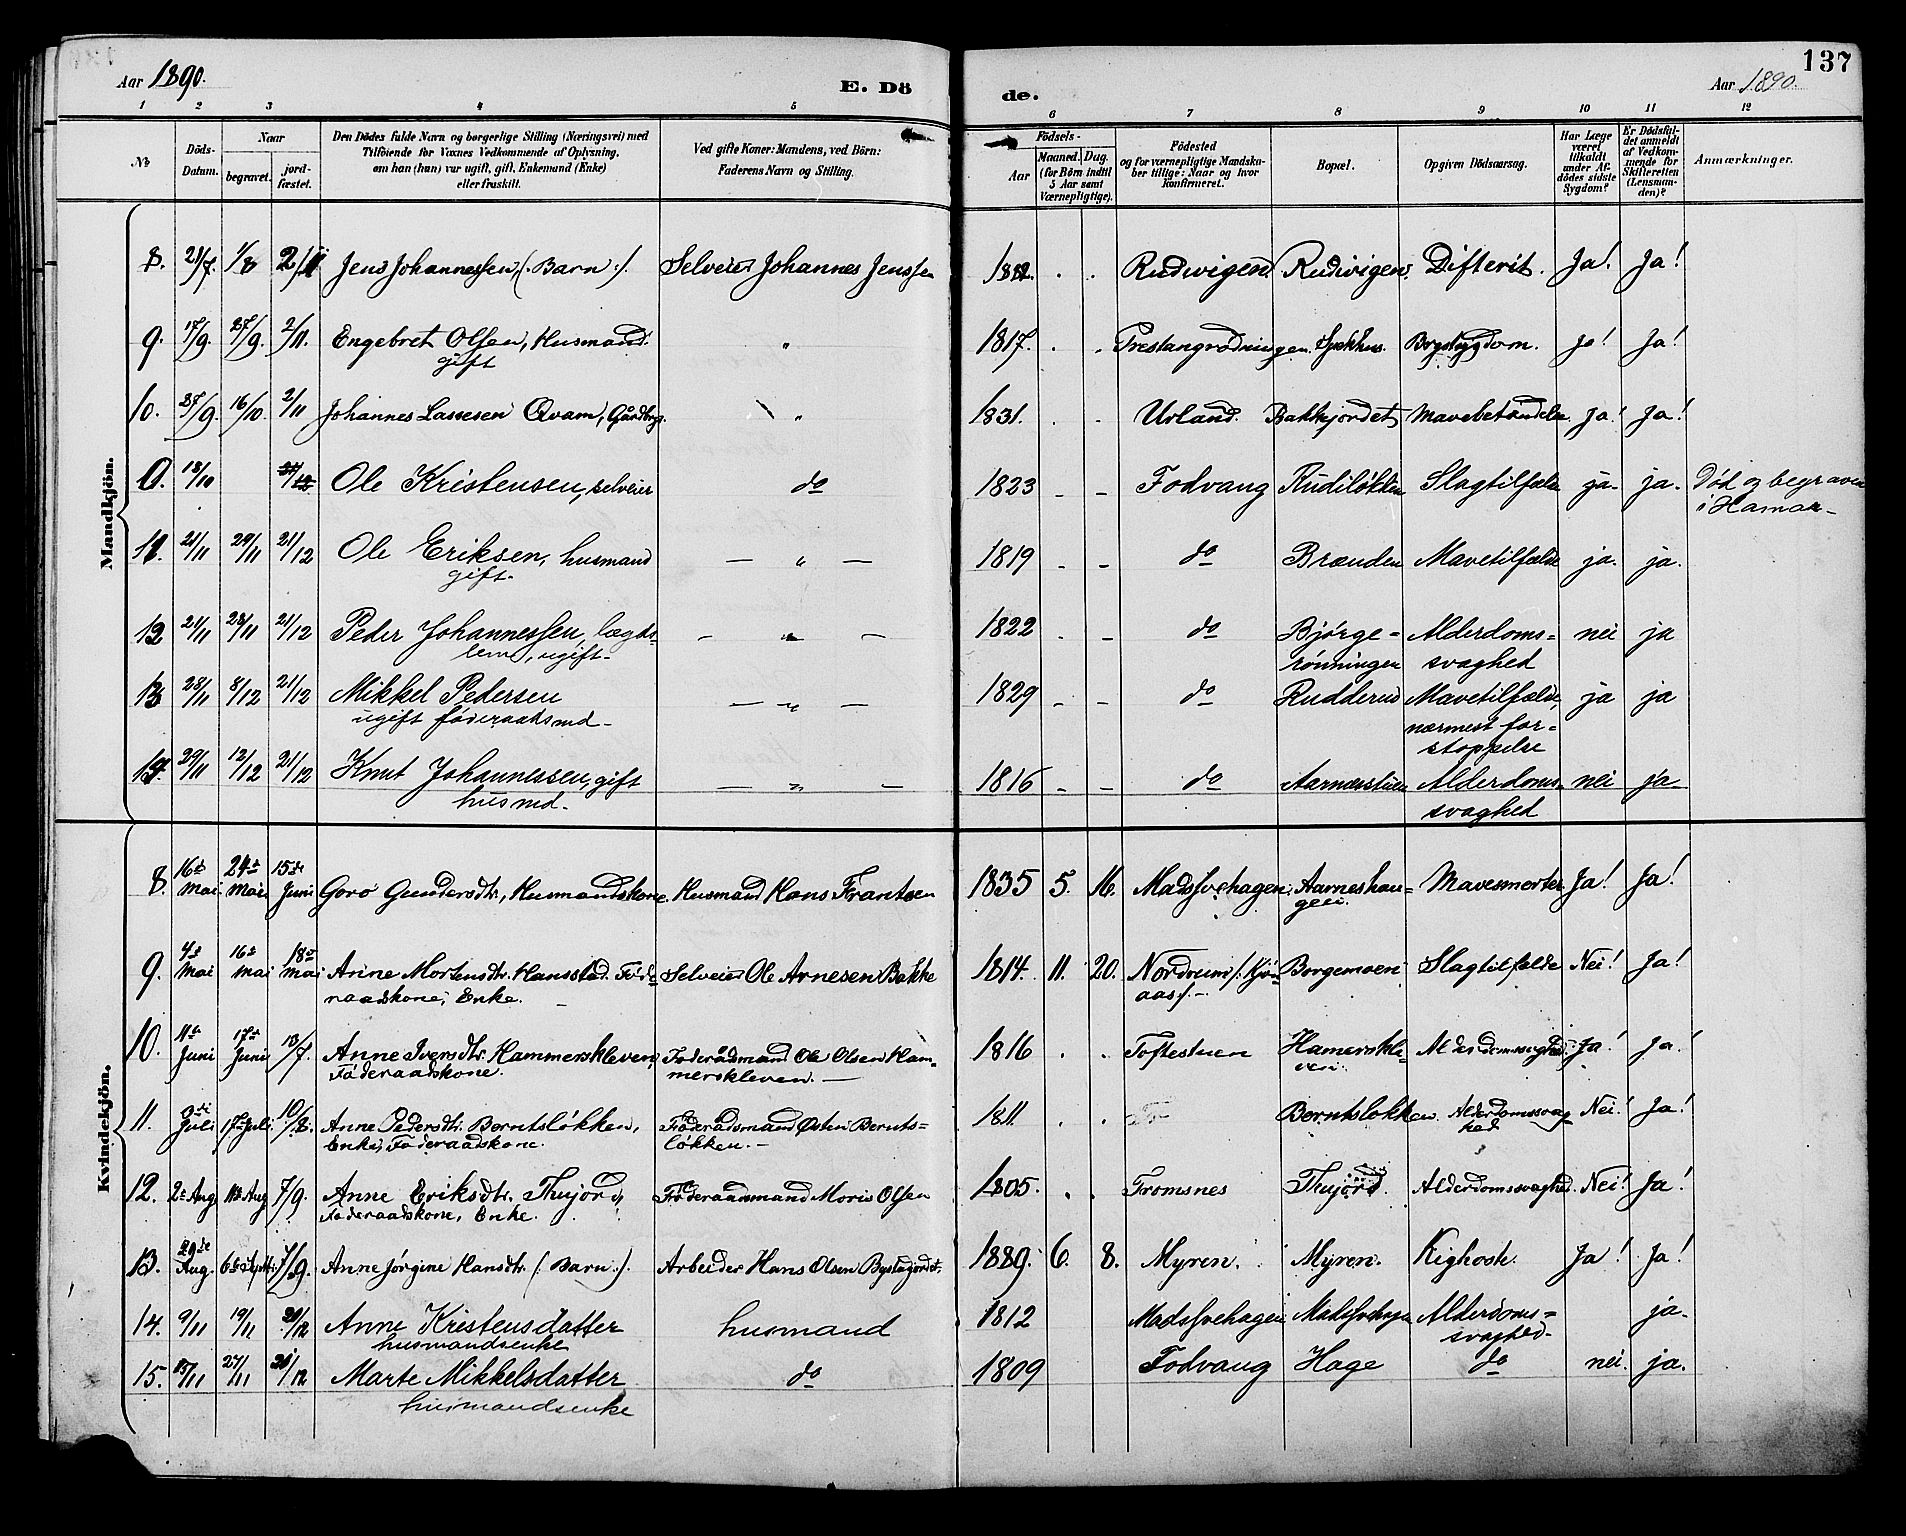 Aar 1890.
E. Dö
de.
137
Aar 1890.
1 2 3 4 5 6 7 8 9 10 11 12
No
Döds-Datum.
Naar
begravet.
jord-fæstet.
Den Dödes fulde Navn og borgerlige Stilling (Næringsvei) med
Tilföiende for Voxnes Vedkommende af Oplysning,
om han (hun) var ugift, gift, Enkemand (Enke)
eller fraskilt.
Ved gifte Koner: Mandens, ved Börn:
Faderens Navn og Stilling.
Födsels-
Aar
Maaned. Dag.
(for Börn indtil
5 Aar samt
Værnepligtige).
Födested
og for værnepligtige Mandska-
ber tillige: Naar og hvor
konfirmeret.
Bopæl.
Opgiven Dödsaarsag.
Har Læge
været
tilkaldt
under Af-
dödes sidste
Sygdom?
Er Dödsfal-
det anmeldt
af Vedkom-
mende for
Skifteretten
(Lensman-
den)?
Anmærkninger.
Mandkjön.
8. 21/7. 1/8 2/11 Jens Johannessen, (. Barn .) Selveier Johannes Jenssen 1882. . . Rudivigen Rudivigen. Difterit. Ja! Ja!
9. 17/9. 27/9. 2/11. Engebret Olsen, Husmand. " 1817. . . Prestangrødningen. Bryst­sygdom. Ja! Ja!
gift
10. 27/9. 16/10. 2/11 Johannes Lassesen Qvam, Gårdbrg. " 1831. . . Urland. Bakkjordet Mavebetændelse Ja! Ja!
0. 13/10 Ole Kristensen, selveier do 1823 - - Fodvang Rudiløkken Slagtilfælde ja- ja- Død og begraven
i Hamar-
11. 21/11 29/11 21/12 Ole Eriksen, husmand — " — 1819 - - do Brænden Mavetilfælde ja. ja.
gift-
12. 21/11 28/11 21/12 Peder Johannessen, lægds- - " - 1822 . - do Bjørge= Alderdoms= nei ja
lem, ugift- rønningen svaghed
13 28/11 8/12 21/12 Mikkel Pedersen — " — 1829 - - do Rudderud Mavetilfælde, ja ja
ugift føderaadsmd- nærmest for=
stoppelse
14. 29/11 12/12 21/12 Knut Johannessen, gift — " - 1816 - - do Aarnæsstuen Alderdoms= nei ja-
husmd- svaghed
Kvindekjön.
8. 16de Mai 24de Mai 15de Juni Goro Gundersdtr., Husmandskone. Husmand Hans Frantsen 1835 5. 16. Madssvehagen. Aarneshau- Mavesmerter Ja! Ja!
gen.
9. 4de Mai 16de Mai 18de Mai Anne Mortensdtr. Hansstad. Føde- Selveier Ole Arnesen Bakke 1814. 11. 20. Nordrum /. Kjøn- Borgemoen Slagtilfælde Nei! Ja!
raadskone, Enke. - aas/.-
10. 11te Juni 17de Juni 13/7. Anne Iversdtr. Hammerskleven, Føderådsmand Ole Olsen Ham- 1816 . . Toftestuen Hamerskle- Alderdomssvaghed. Ja! Ja!
Føderaadskone. merskleven. — ven.
11. 9de Juli 17de Juli 10/8. Anne Pedersdtr. Berntsløkken, Føderådsmand Østen Bernts- 1811. . . Berntsløkken. Alderdomssvag- Nei! Ja!
Enke, Føderaadskone. løkken.- hed
12. 2de Aug 11te Aug 7/9. Anne Eriksdtr. Thujord, Føderaadsmand Moris Olsen 1805. . . Tromsnes Thujord. Alderdomssvaghed. Nei! Ja!
Føderaadskone, Enke.
13. 29de Aug. 6te Septbr. 7/9. Anne Jørgine Hansdtr. (. Barn .) Arbeider Hans Olsen 1889. 6. 8. Myren. Myren. Kighoste. Ja! Ja!
14. 9/11 19/11 21/12 Anne Kristensdatter husmand 1812 Madssvehagen Madssvehagen Alderdoms= ja-
husmandsenke svaghed-
15. 15/11 27/11 21/12 Marte Mikkelsdatter do 1809 Fodvang Hage do nei. ja.
husmandsenke